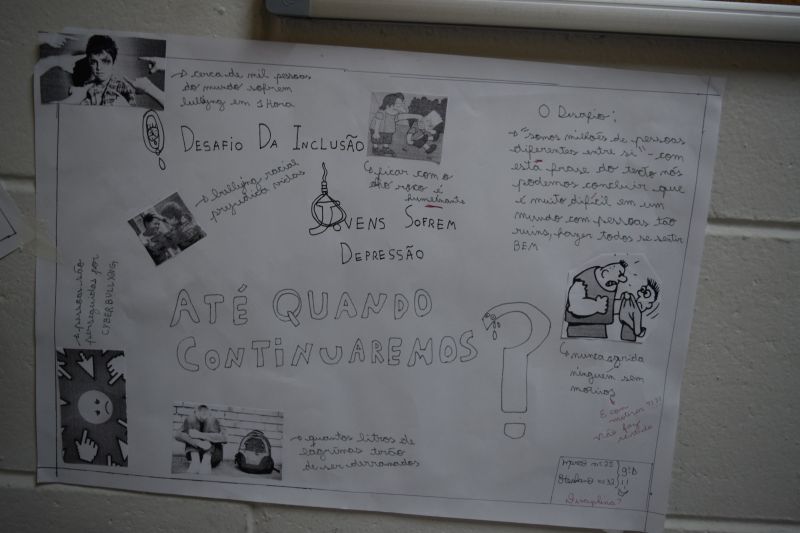 → cerca de mil pessoas
do mundo sofrem
bullying em 1 hora
O DESAFIO DA INCLUSÃO
→ ficar com o
olho roxo é
humelhante
O Desafio:
→ "somos milhões de pessoas
diferentes entre si" - com
está frase do texto nós
podemos concluir que
é muito difícil em um
mundo com pessoas tão
ruins, fazer todos se sentir
BEM
→ bullying racial
prejudica vidas
JOVENS SOFREM
DEPRESSÃO
→ pessoas são
perseguidas por
CYBERBULLYING
ATÉ QUANDO
CONTINUAREMOS?
→ nunca agrida
ninguém sem
motivos
E com
motivos???
não faz
sentido
→ quantos litros de
lágrimas terão
de ser derramados
nº 22
nº 32
9ºD
Disciplina?